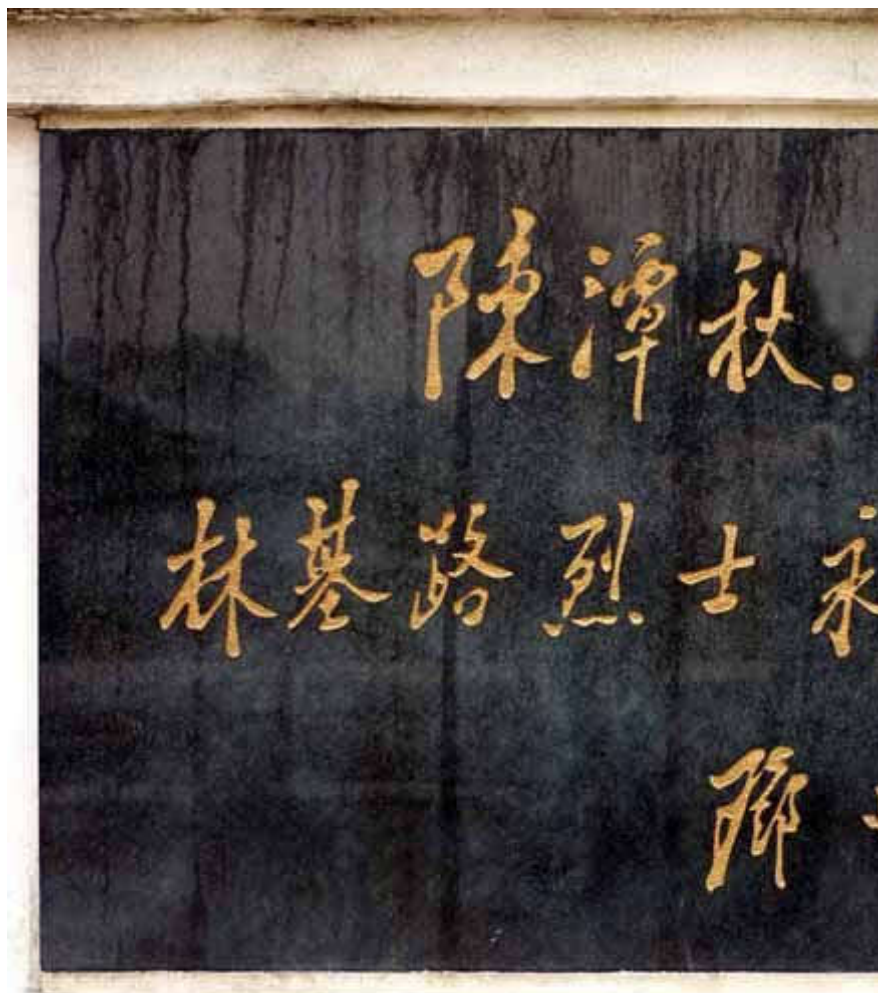 陳潭秋.
林基路烈士永
鄧